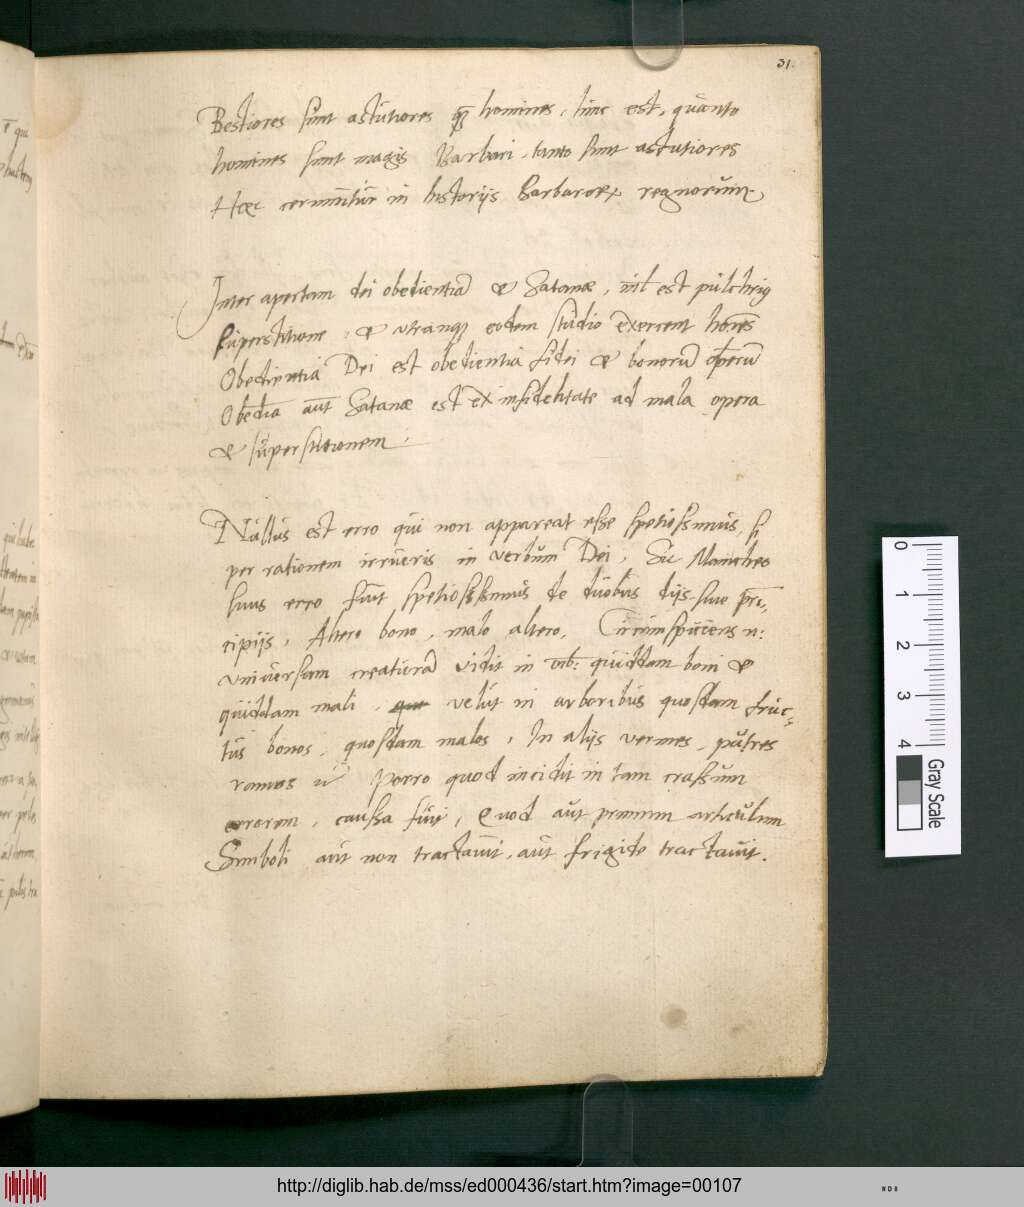 31.
Bestiores sunt astutiores qȝ homines, hinc est, quanto
homines sunt magis Barbari, tanto sunt astutiores
Haec cernuntur in historijs barbarorꝝ regnorum.
Inter apertam dei obedientiā & Satanae, nihil est pulchrius
superstitione, & utranqȝ eodem studio exercent hoīes
Obedientia Dei est obedientia fidei & bonorū operū
Obedīa aūt Satanae est ex infidelitate ad mala opera
& superstitionem.
Nullus est erro qui non appareat esse spetiosissimus, si
per rationem irrueris in verbum Dei, Sic Manicheo
suus erro fuit spetiosissimus de duobus dijs siue prī-
cipijs, Altero bono, malo altero, Circumspiciens n:
vniuersam creaturā vidit in oīb: quiddam boni &
quiddam mali, velut in arboribus quosdam fruc-
tus bonos, quosdam malos, In alijs vermes, putres
ramos Porro quod incidit in tam crassum
errorem, caussa fuit, Quod aut primum articulum
Simboli aut non tractauit, aut frigide tractauit.
0
1
2
3
4
Gray Scale
http://diglib.hab.de/mss/ed000436/start.htm?image=00107